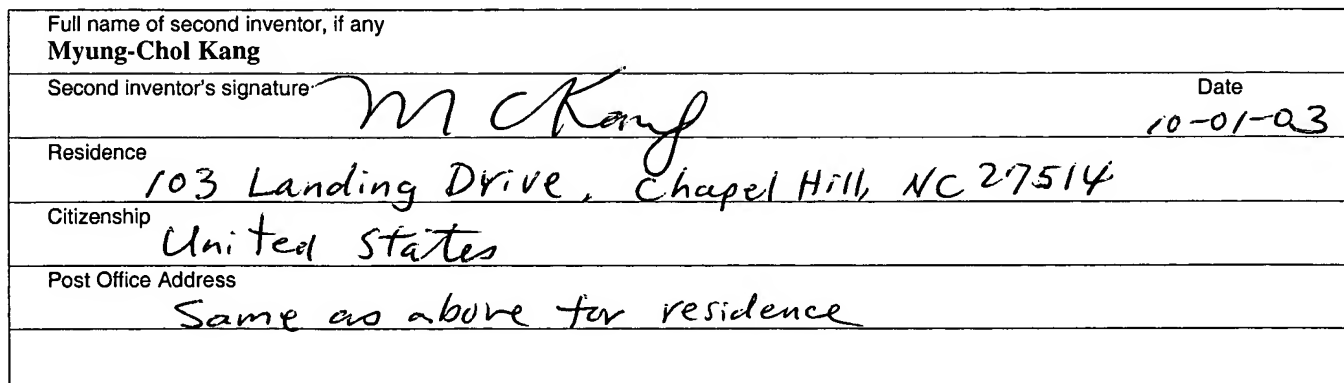 Full name of second inventor, if any
Myung-Chol Kang
Second inventor's signature M C Kang Date
10-01-03
Residence
103 Landing Drive, Chapel Hill, NC 27514
Citizenship
United States
Post Office Address
Same as above for residence